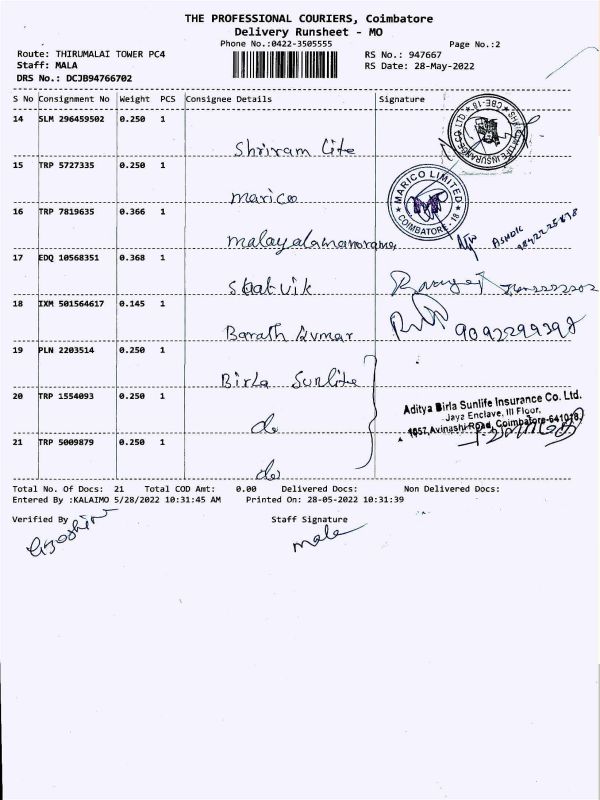 THE PROFESSIONAL COURIERS, Coimbatore
Delivery Runsheet - MO
Phone No.:0422-3505555
Page No.:2
Route: THIRUMALAI TOWER PC4
RS No.: 947667
Staff: MALA
RS Date: 28-May-2022
DRS No.: DCJB94766702
S No Consignment No Weight PCS Consignee Details Signature
14 SLM 296459502 0.250 1
Shriram Life
15 TRP 5727335 0.250 1
Marico
MARICO LIMITED
COIMBATORE - 18
16 TRP 7819635 0.366 1
malayalamanorama
ASHOK
17 EDQ 10568351 0.368 1
Saatvik
18 IXM 501564617 0.145 1
Barath Kumar
9092299398
19 PLN 2203514 0.250 1
Birla Sunlife
20 TRP 1554093 0.250 1
do
Aditya Birla Sunlife Insurance Co. Ltd.
Jaya Enclave, III Floor,
1057, Avinashi Road, Coimbatore-641018.
21 TRP 5009879 0.250 1
do
Total No. Of Docs: 21 Total COD Amt: 0.00 Delivered Docs: Non Delivered Docs:
Entered By :KALAIMO 5/28/2022 10:31:45 AM Printed On: 28-05-2022 10:31:39
Verified By Staff Signature
mala